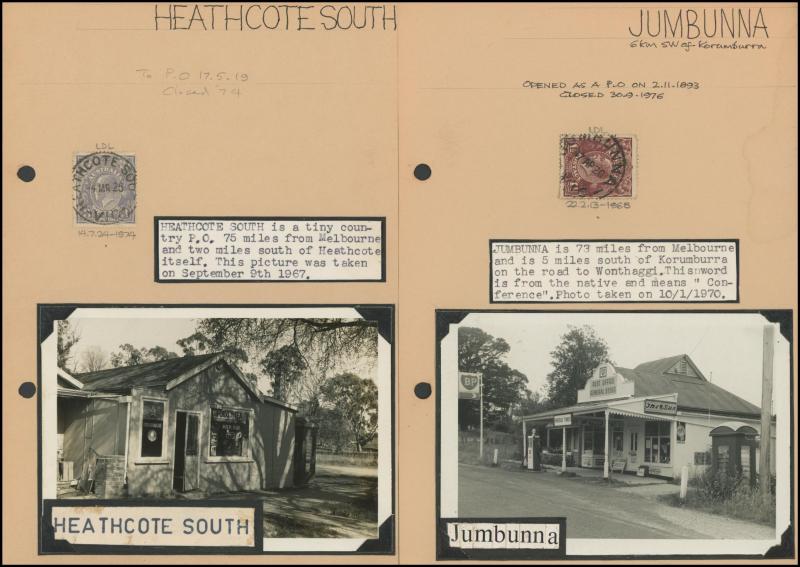 HEATHCOTE SOUTH
To P.O 17.5.19
Closed 74
LDL
HEATHCOTE SOU
4 MR 25
14.7.24-1974
HEATHCOTE SOUTH is a tiny coun-
try P.O. 75 miles from Melbourne
and two miles south of Heathcote
itself. This picture was taken
on September 9th 1967.
HEATHCOTE SOUTH
JUMBUNNA
6km SW of Korumburra
OPENED AS A P.O ON 2.11.1893
CLOSED 30.9.1976
LDL
22.2.13-1968
JUMBUNNA is 73 miles from Melbourne
and is 5 miles south of Korumburra
on the road to Wonthaggi.Thisnword
is from the native and means " Con-
ference".Photo taken on 10/1/1970.
BP
POST OFFICE
GENERAL STORE
The Sun
Jumbunna